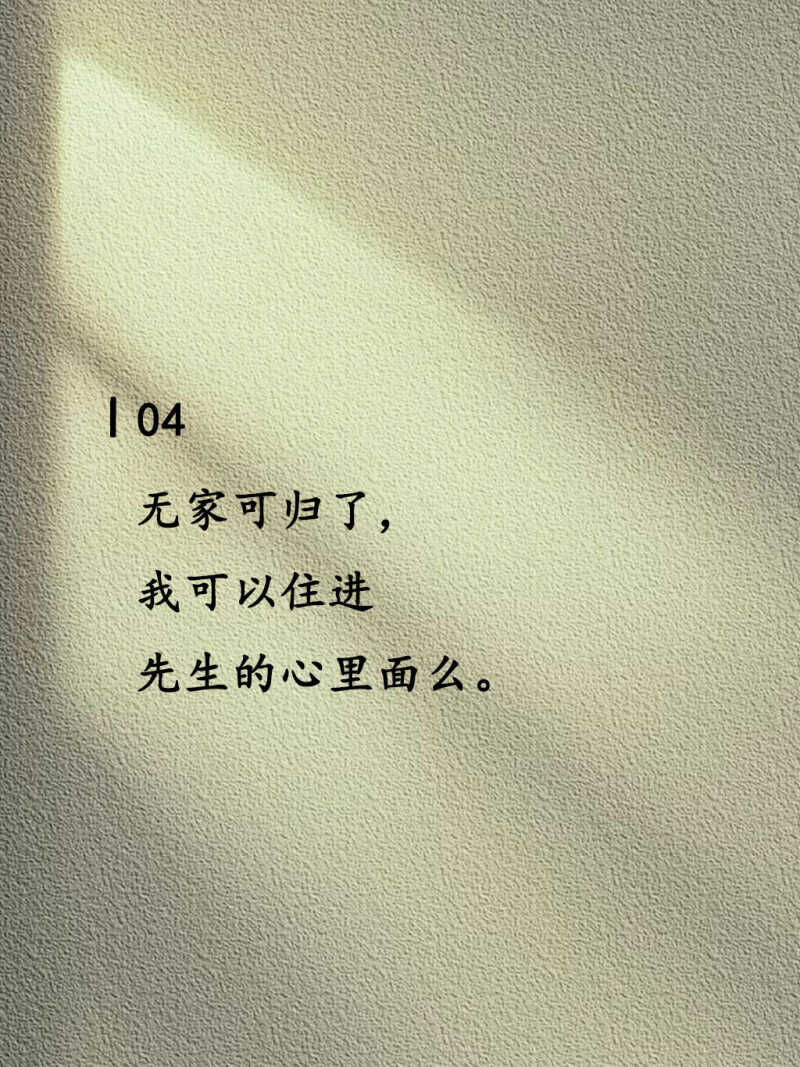 | 04
无家可归了，
我可以住进
先生的心里面么。